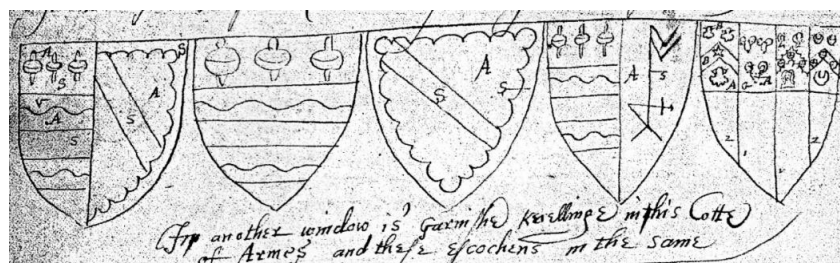 A S A S S A S
S A S
A S
In another window is Garnishe kneellinge in this Cotte
of Armes and these escochens in the same